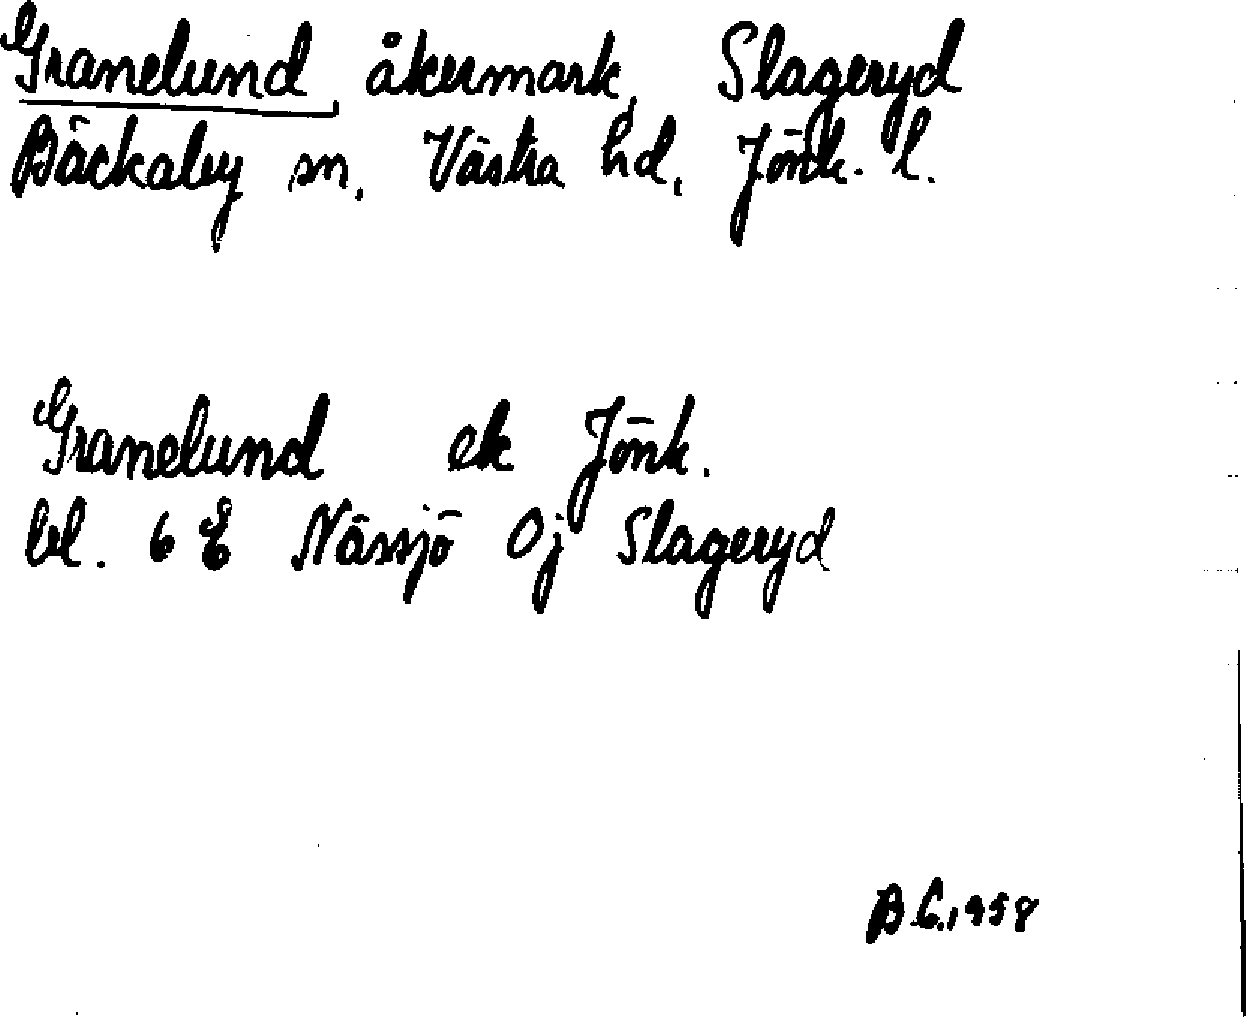 Granelund, åkermark, Slageryd
Bäckaby sn, Västra hd, Jönk. l.
Granelund ek Jönk.
bl. 6 E Nässjö Oj Slageryd
B.G. 1958